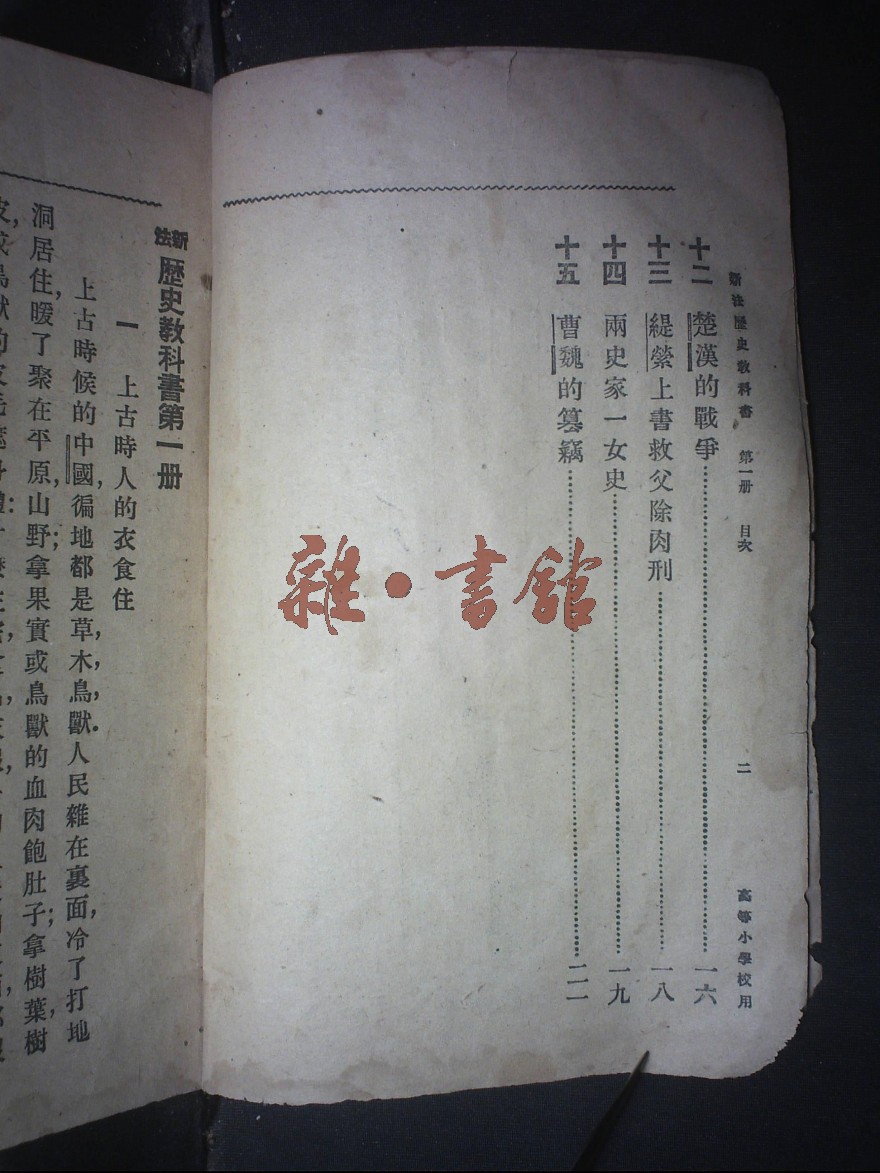 新法歷史教科書 第一册 目次 二 高等小學校用
十二 楚漢的戰爭……一六
十三 緹縈上書救父除肉刑……一八
十四 兩史家一女史……一九
十五 曹魏的篡竊……二一
雜·書館
新法歷史教科書第一册
一 上古時人的衣食住
上古時候的中國，徧地都是草，木，鳥，獸．人民雜在裏面，冷了打地
洞居住，暖了聚在平原，山野；拿果實或鳥獸的血肉飽肚子；拿樹葉，樹
皮，或鳥獸的皮毛遮身體；